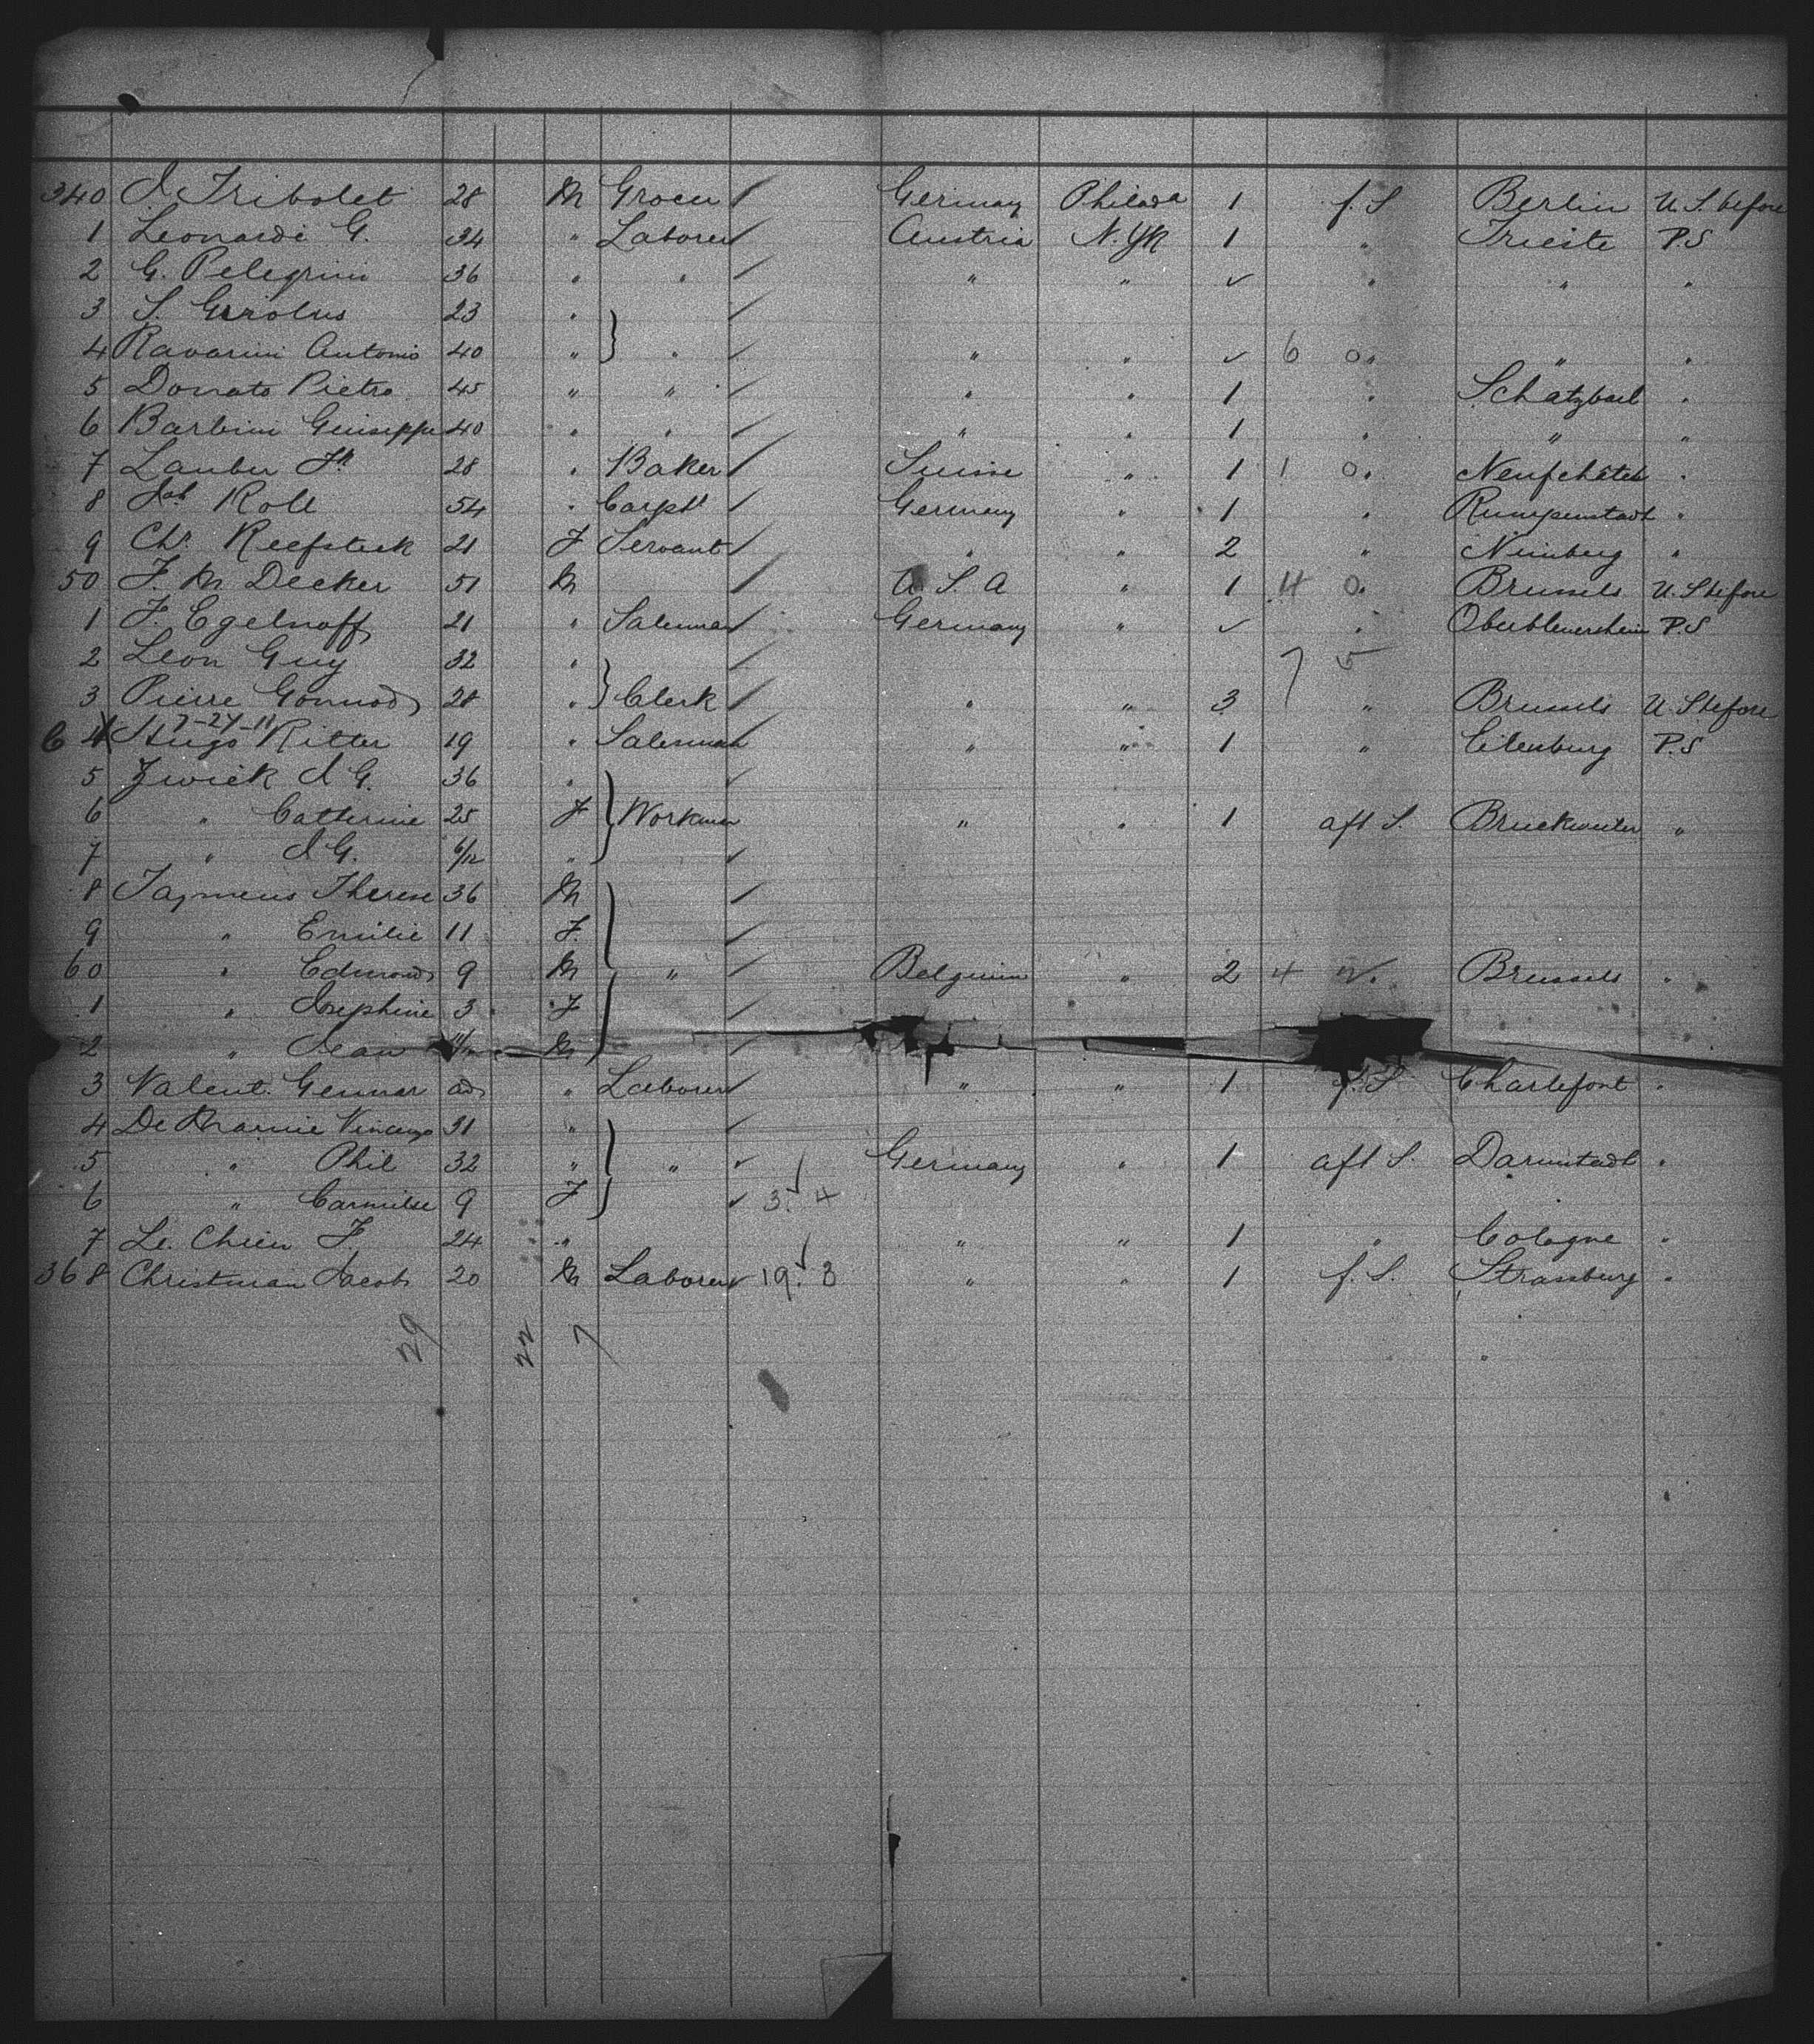 340 J. Tribolet 28 M Grocer / Germany Philada 1 f. S Berlin U. S. before
1 Leonardi G. 34 " Laborer / Austria N. Yk 1 " Trieste P.S
2 G. Pelegrini 36 " " / " " ✓ " " "
3 S. Girolus 23 " /
4 Ravarini Antonio 40 " " / " " ✓ 6 0 " " "
5 Donato Pietro 45 " " / " " 1 " "
6 Barbini Guiseppe 40 " " / " " 1 " " "
7 Lauber Fr 28 " Baker / Suisse " 1 1 0 " Neufchâtel "
8 Jab Roll 54 " Carpt / Germany " 1 " "
9 Chr. Reefsteck 21 F Servant / " " 2 " "
50 F. M Decker 51 M / U. S. A " 1 4 0 " Brussels U. S before
1 F. Egelnoff 21 " Salesman / Germany " ✓ " P.S
2 Leon Guy 32 " / 7 5
3 Pierre Gonnod 28 " Clerk / " " 3 " Brussels U. S before
7-24-11
C 4 Hugo Ritter 19 " Salesman " " 1 " Eilenburg P.S
5 Zwick J G. 36 " ✓
6 " Catherine 25 F Workman " " 1 aft S. "
7 " J G. 6/12 " ✓
8 Taymeus Therese 36 M /
9 " Emilie 11 F. /
60 " Edmond 9 M " / Belgium " 2 4 " Brussels "
1 " Josephine 3 F /
2 " Jean 11/12 M /
3 Valent. Gennar ad " Laborer / " " 1 f. S Charlefont "
4 De Marnie Vincenzo 31 " /
5 " Phil 32 " " ✓ Germany " 1 aft S. Darmstadt "
6 " Carmilse 9 F ✓ 3. 4
7 Le. Chien F. 24 " " " 1 " Cologne "
368 Christman Jacob 20 M Laborer ✓ 19. 3 " " 1 f. S. Strassburg "
29 22 7